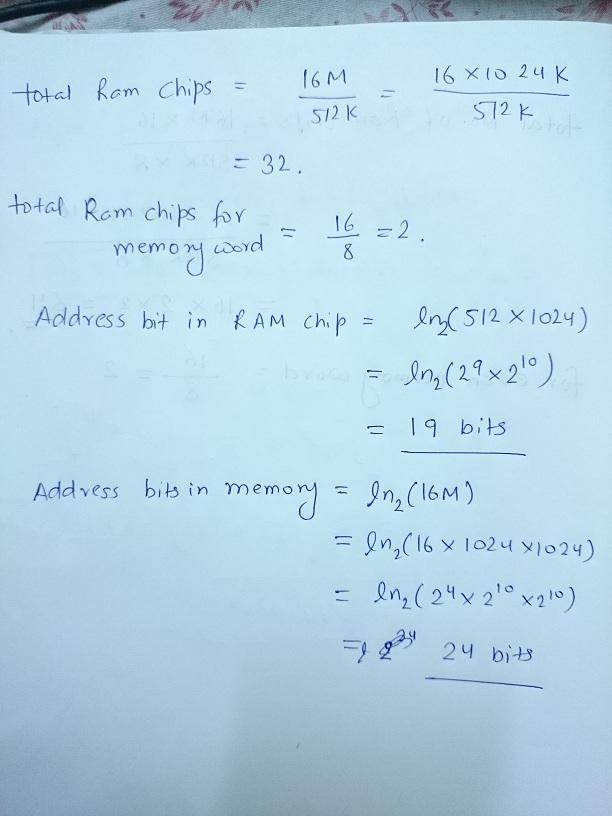 total Ram Chips = 16M / 512K = 16 × 1024K / 512K
= 32.
total Ram chips for
memory word = 16 / 8 = 2.
Address bit in RAM chip = ln₂(512 × 1024)
= ln₂(2⁹ × 2¹⁰)
= 19 bits
Address bits in memory = ln₂(16M)
= ln₂(16 × 1024 × 1024)
= ln₂(2⁴ × 2¹⁰ × 2¹⁰)
= 24 bits